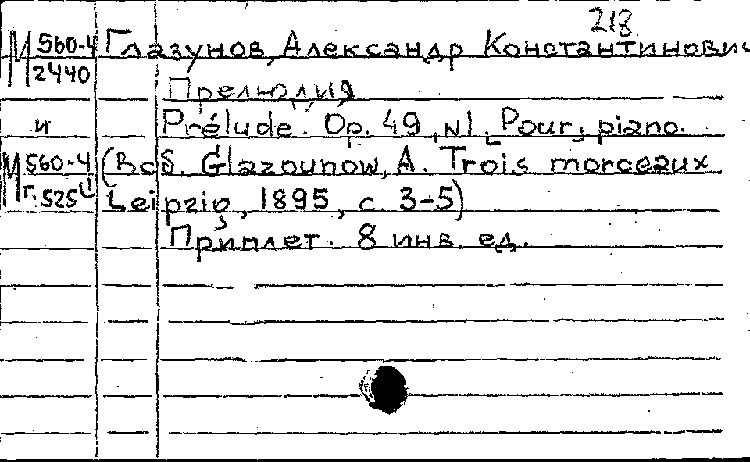 218
М 560-4 Глазунов, Александр Константинович
2440
Прелюдия
и Prélude. Op. 49, N1. Pour piano.
М 560-4 (Воб. Glazounow, A. Trois morceaux
Г. 525 Leipzig, 1895, с 3-5)
Приплет. 8 инв. ед.